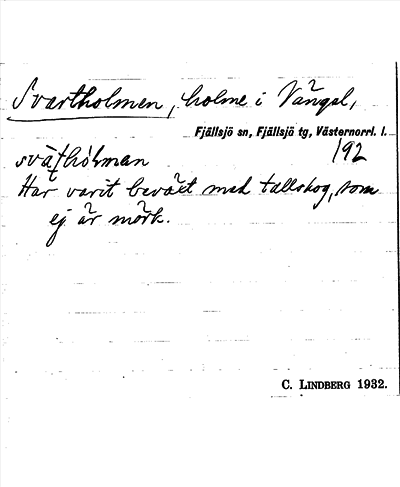 Svartholmen, holme i Vängel,
Fjällsjö sn, Fjällsjö tg, Västernorrl. l.
192
svàt̩hólman
Har varit beväxt med tallskog, som
ej är mörk.
C. LINDBERG 1932.